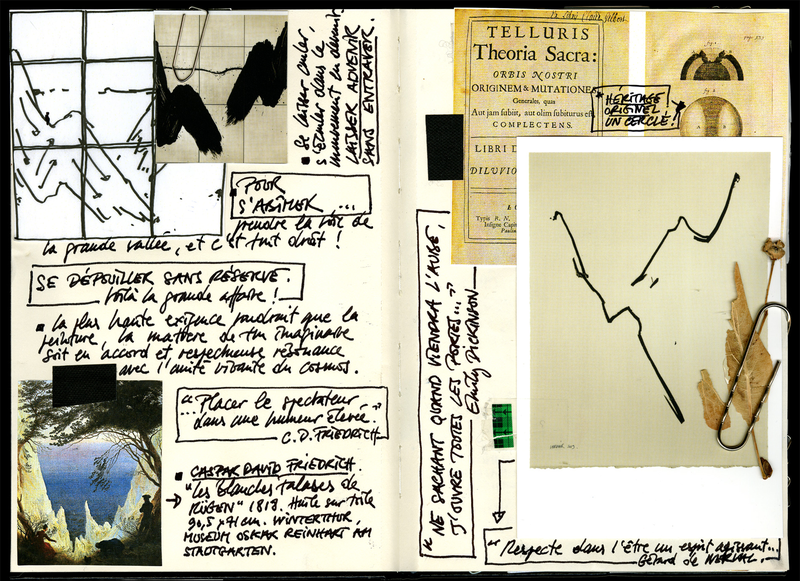 Se laisser couler,
s'écouler dans le
mouvement en devenir
LAISSER ADVENIR
SANS ENTRAVER.
POUR
S'ABÎMER ...
prendre la voie de
la grande vallée, et c'est tout droit !
SE DÉPOUILLER SANS RÉSERVE.
Voilà la grande affaire !
la plus haute exigence voudrait que la
peinture, la matière de ton imaginaire
soit en accord et respectueuse résonance
avec l'unité vivante du cosmos.
"Placer le spectateur
...dans une humeur élevée."
C.D. FRIEDRICH
CASPAR DAVID FRIEDRICH.
"les blanches falaises de
RÜGEN" 1818. Huile sur toile
90,5 x 71 cm. WINTERTHUR,
MUSEUM OSKAR REINHART AM
STADTGARTEN.
TELLURIS
Theoria Sacra:
ORBIS NOSTRI
ORIGINEM & MUTATIONES
Generales, quas
Aut jam subiit, aut olim subiturus est,
COMPLECTENS.
LIBRI D
DILUVIO
Typis R. N.
Insigne Capi
Paulin
fig. 1
fig. 2
HÉRITAGE
ORIGINEL
UN CERCLE !
"NE SACHANT QUAND VIENDRA L'AUBE,
J'OUVRE TOUTES LES PORTES..."
Emily DICKINSON
"Respecte dans l'être un esprit agissant...
Gérard de NERVAL.